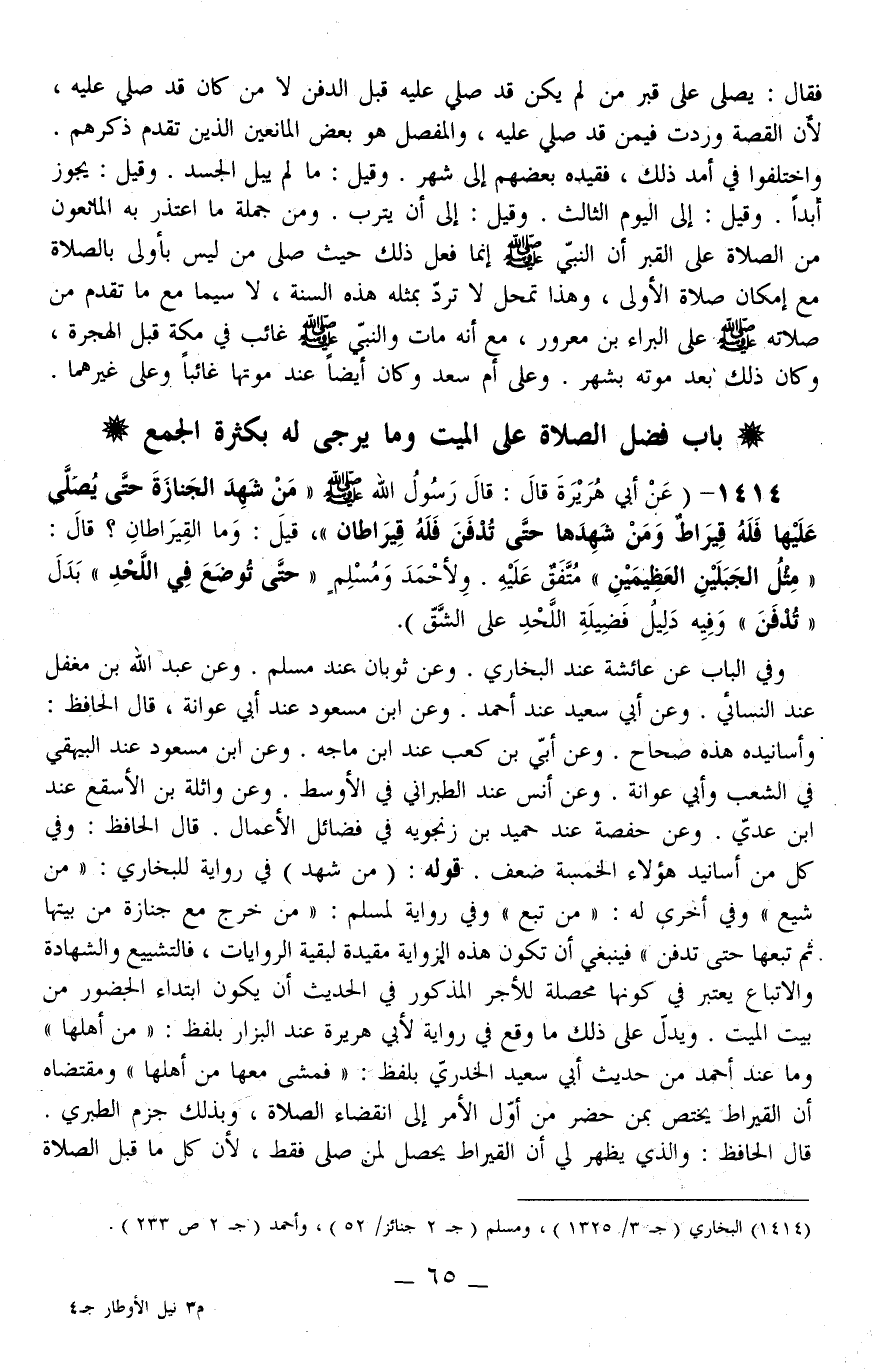 فقال : يصلى على قبر من لم يكن قد صلي عليه قبل الدفن لا من كان قد صلي عليه ،
لأن القصة وردت فيمن قد صلي عليه ، والمفصل هو بعض المانعين الذين تقدم ذكرهم .
واختلفوا في أمد ذلك ، فقيده بعضهم إلى شهر . وقيل : ما لم يبل الجسد . وقيل : يجوز
أبداً . وقيل : إلى اليوم الثالث . وقيل : إلى أن يترب . ومن جملة ما اعتذر به المانعون
من الصلاة على القبر أن النبيّ ﷺ إنما فعل ذلك حيث صلى من ليس بأولى بالصلاة
مع إمكان صلاة الأولى ، وهذا تمحل لا تردّ بمثله هذه السنة ، لا سيما مع ما تقدم من
صلاته ﷺ على البراء بن معرور ، مع أنه مات والنبيّ ﷺ غائب في مكة قبل الهجرة ،
وكان ذلك بعد موته بشهر . وعلى أم سعد وكان أيضاً عند موتها غائباً وعلى غيرهما .
✵ باب فضل الصلاة على الميت وما يرجى له بكثرة الجمع ✵
١٤١٤- ( عَنْ أبي هُرَيْرَةَ قالَ : قالَ رَسُولُ الله ﷺ « مَنْ شَهِدَ الجَنازَةَ حتَّى يُصَلَّي
عَلَيْها فَلَهُ قِيرَاطٌ وَمَنْ شَهِدَها حتَّى تُدْفَنَ فَلَهُ قِيرَاطان »، قيلَ : وَما القِيرَاطانِ ؟ قالَ :
« مِثْلُ الجَبَلَيْنِ العَظِيمَيْنِ » مُتَّفَقٌ عَلَيْهِ . وِلأحْمَدَ وَمُسْلِمٍ « حتَّى تُوضَعَ فِي اللَّحْدِ » بَدَلَ
« تُدْفَنَ » وَفِيه دَلِيلُ فَضِيلَةِ اللَّحْدِ على الشَّقّ ).
وفي الباب عن عائشة عند البخاري . وعن ثوبان عند مسلم . وعن عبد الله بن مغفل
عند النسائي . وعن أبي سعيد عند أحمد . وعن ابن مسعود عند أبي عوانة ، قال الحافظ :
وأسانيده هذه صحاح . وعن أبيّ بن كعب عند ابن ماجه . وعن ابن مسعود عند البيهقي
في الشعب وأبي عوانة . وعن أنس عند الطبراني في الأوسط . وعن واثلة بن الأسقع عند
ابن عديّ . وعن حفصة عند حميد بن زنجويه في فضائل الأعمال . قال الحافظ : وفي
كل من أسانيد هؤلاء الخمسة ضعف . قوله : ( من شهد ) في رواية للبخاري : « من
شيع » وفي أخرى له : « من تبع » وفي رواية لمسلم : « من خرج مع جنازة من بيتها
ثم تبعها حتى تدفن » فينبغي أن تكون هذه الرواية مقيدة لبقية الروايات ، فالتشييع والشهادة
والاتباع يعتبر في كونها محصلة للأجر المذكور في الحديث أن يكون ابتداء الحضور من
بيت الميت . ويدلّ على ذلك ما وقع في رواية لأبي هريرة عند البزار بلفظ : « من أهلها »
وما عند أحمد من حديث أبي سعيد الخدريّ بلفظ : « فمشى معها من أهلها » ومقتضاه
أن القيراط يختص بمن حضر من أوّل الأمر إلى انقضاء الصلاة ، وبذلك جزم الطبري .
قال الحافظ : والذي يظهر لي أن القيراط يحصل لمن صلى فقط ، لأن كل ما قبل الصلاة
(١٤١٤) البخاري ( جـ ٣/ ١٣٢٥ ) ، ومسلم ( جـ ٢ جنائز/ ٥٢ ) ، وأحمد ( جـ ٢ ص ٢٣٣ ) .
_ ٦٥ _
م٣ نيل الأوطار جـ٤